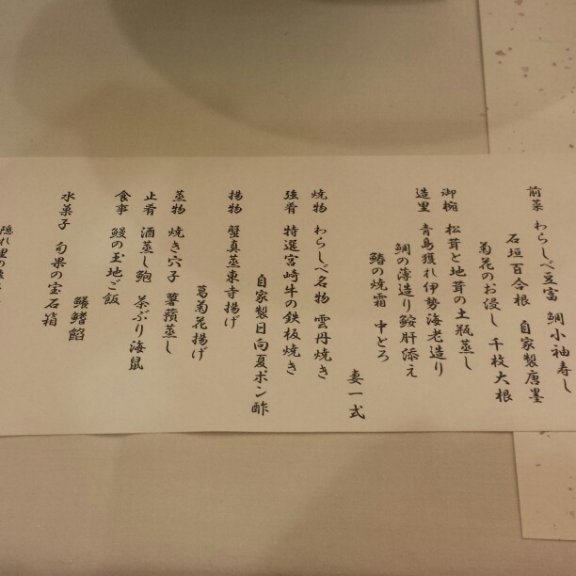 前菜 わらしべ豆富 鯛小袖寿し
石垣百合根 自家製唐墨
菊花のお浸し 千枚大根
御椀 松茸と地茸の土瓶蒸し
造里 青島獲れ伊勢海老造り
鯛の薄造り鮟肝添え
鰆の焼霜 中とろ
妻一式
焼物 わらしべ名物 雲丹焼き
強肴 特選宮崎牛の鉄板焼き
自家製日向夏ポン酢
揚物 蟹真蒸東寺揚げ
葛菊花揚げ
蒸物 焼き穴子 薯蕷蒸し
止肴 酒蒸し鮑 茶ぶり海鼠
食事 鰻の玉地ご飯
鱶鰭餡
水菓子 旬果の宝石箱
隠れ里の